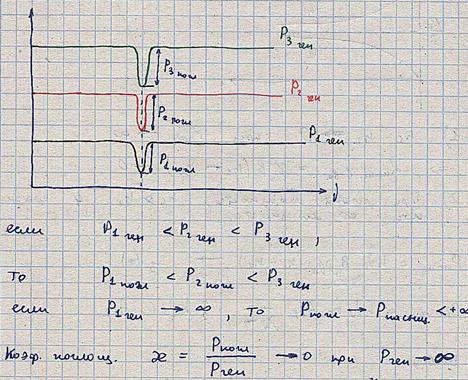 P₃ ген
P₃ погл
P₂ ген
P₂ погл
P₁ ген
P₁ погл
ν
если P₁ ген < P₂ ген < P₃ ген ,
то P₁ погл < P₂ погл < P₃ ген
если P₁ ген → ∞ , то Pпогл → Pнасыщ. < +∞
Коэф. поглощ. æ = Pпогл / Pген → 0 при Pген → ∞